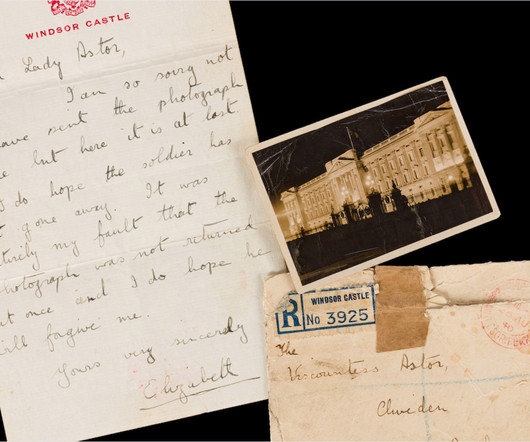 WINDSOR CASTLE
Lady Astor,
I am so sorry not
sent the photograph
but here it is at last.
do hope the soldier has
gone away. It was
my fault that the
photograph was not returned
once and I do hope he
forgive me.
Yours very sincerely
Elizabeth
R
WINDSOR CASTLE
No 3925
The
Viscountess Astor,
Cliveden